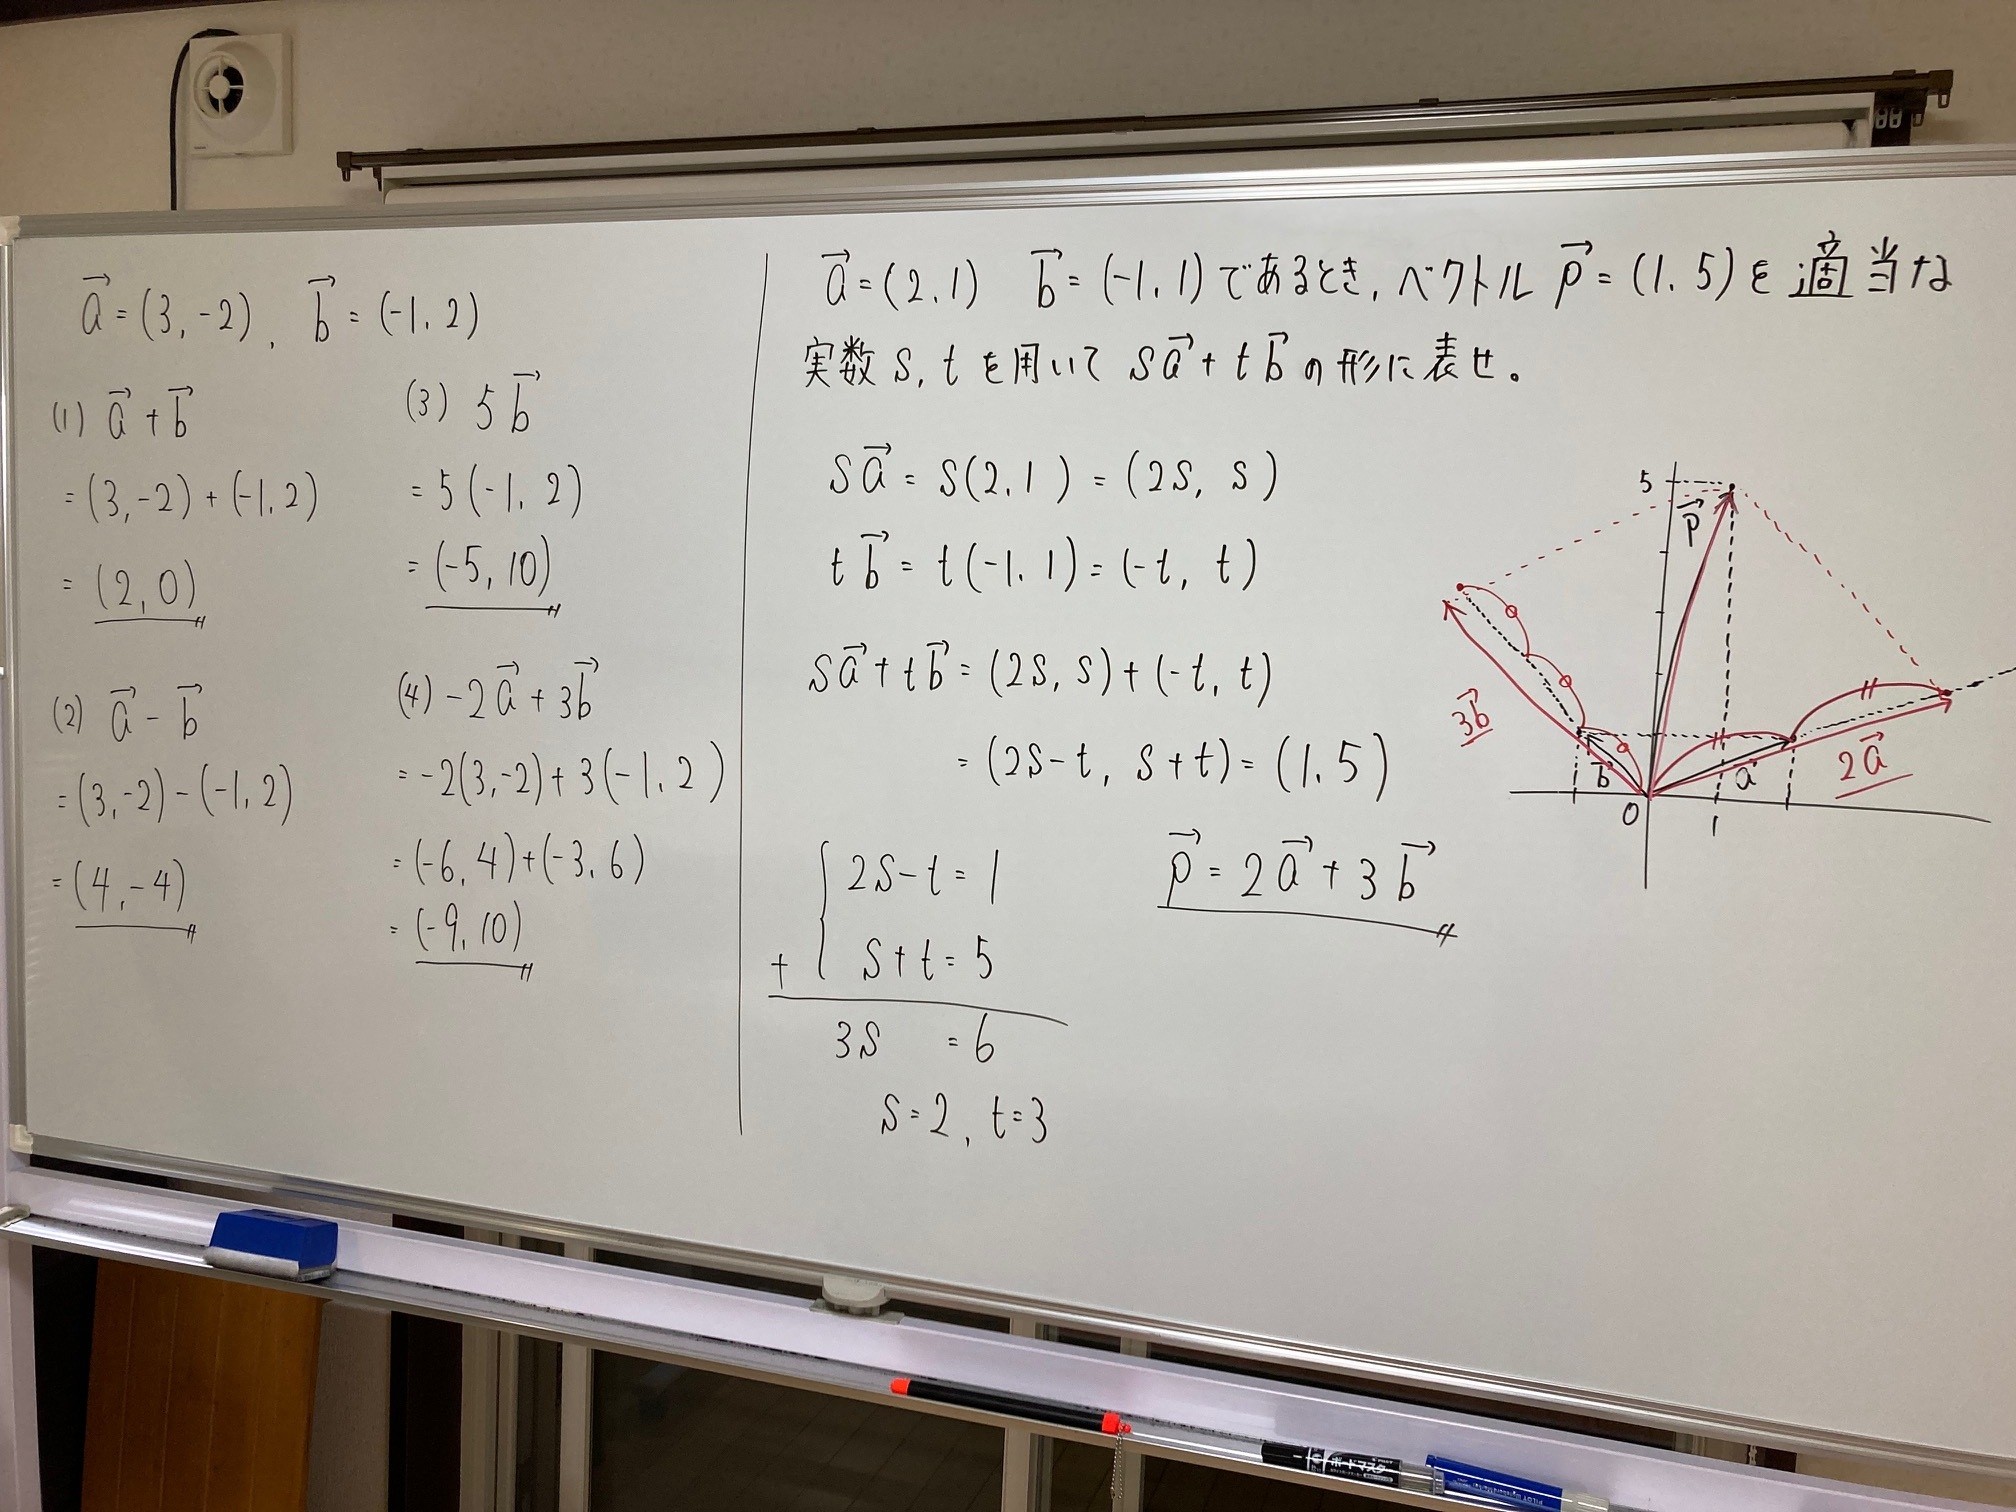 a⃗ = (3, -2), b⃗ = (-1, 2)
(1) a⃗ + b⃗
= (3, -2) + (-1, 2)
= (2, 0)
(2) a⃗ - b⃗
= (3, -2) - (-1, 2)
= (4, -4)
(3) 5b⃗
= 5(-1, 2)
= (-5, 10)
(4) -2a⃗ + 3b⃗
= -2(3, -2) + 3(-1, 2)
= (-6, 4) + (-3, 6)
= (-9, 10)
a⃗ = (2, 1) b⃗ = (-1, 1) であるとき, ベクトル p⃗ = (1, 5) を 適当な
実数 s, t を用いて sa⃗ + tb⃗ の形に表せ。
sa⃗ = s(2, 1) = (2s, s)
tb⃗ = t(-1, 1) = (-t, t)
sa⃗ + tb⃗ = (2s, s) + (-t, t)
= (2s-t, s+t) = (1, 5)
2s - t = 1
+ s + t = 5
3s = 6
s = 2, t = 3
p⃗ = 2a⃗ + 3b⃗
5
p⃗
3b⃗
b⃗
a⃗
2a⃗
O
1
ボードマスター